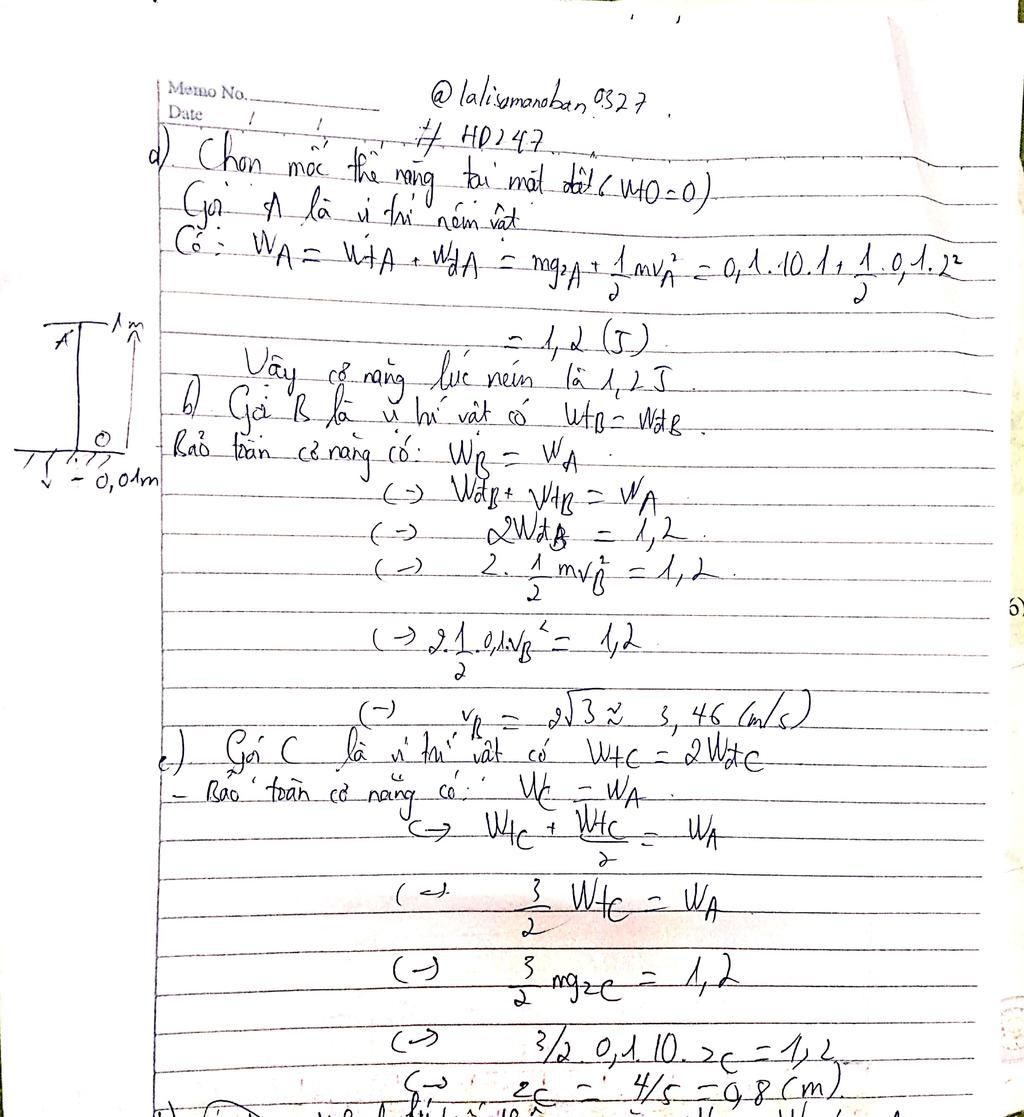 Memo No.
Date / /
@lalisamanoban0327
# HD247
a) Chọn mốc thế năng tại mặt đất (WtO=0)
Gọi A là vị trí ném vật
Có: WA = WtA + WđA = mgzA + 1/2 mvA² = 0,1.10.1 + 1/2 . 0,1.2²
= 1,2 (J)
Vậy cơ năng lúc ném là 1,2J
b) Gọi B là vị trí vật có WtB = WđB.
Bảo toàn cơ năng có: WB = WA
(-) WđB + WtB = WA
(-) 2WđB = 1,2
(-) 2. 1/2 mvB² = 1,2.
(-) 2.1/2 .0,1.vB² = 1,2
(-) vB = 2√3 ≈ 3,46 (m/s)
c) Gọi C là vị trí vật có WtC = 2WđC
- Bảo toàn cơ năng có: WC = WA.
(-) WtC + WtC/2 = WA
(-) 3/2 WtC = WA
(-) 3/2 mgzC = 1,2
(-) 3/2 0,1.10. zC = 1,2
(-) zC = 4/5 = 0,8 (m).
A
1m
O
- 0,01m
6)